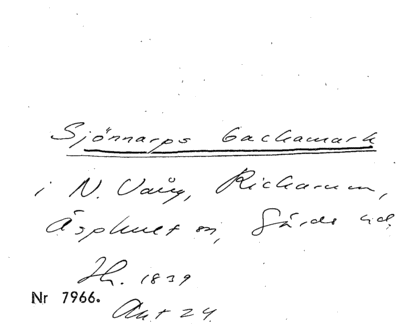 Sjönnarps backamark
i N. Vång, Rickarum,
Äsphult m, Gärds hd.
Jb. 1839
Nr 7966.
Akt 24